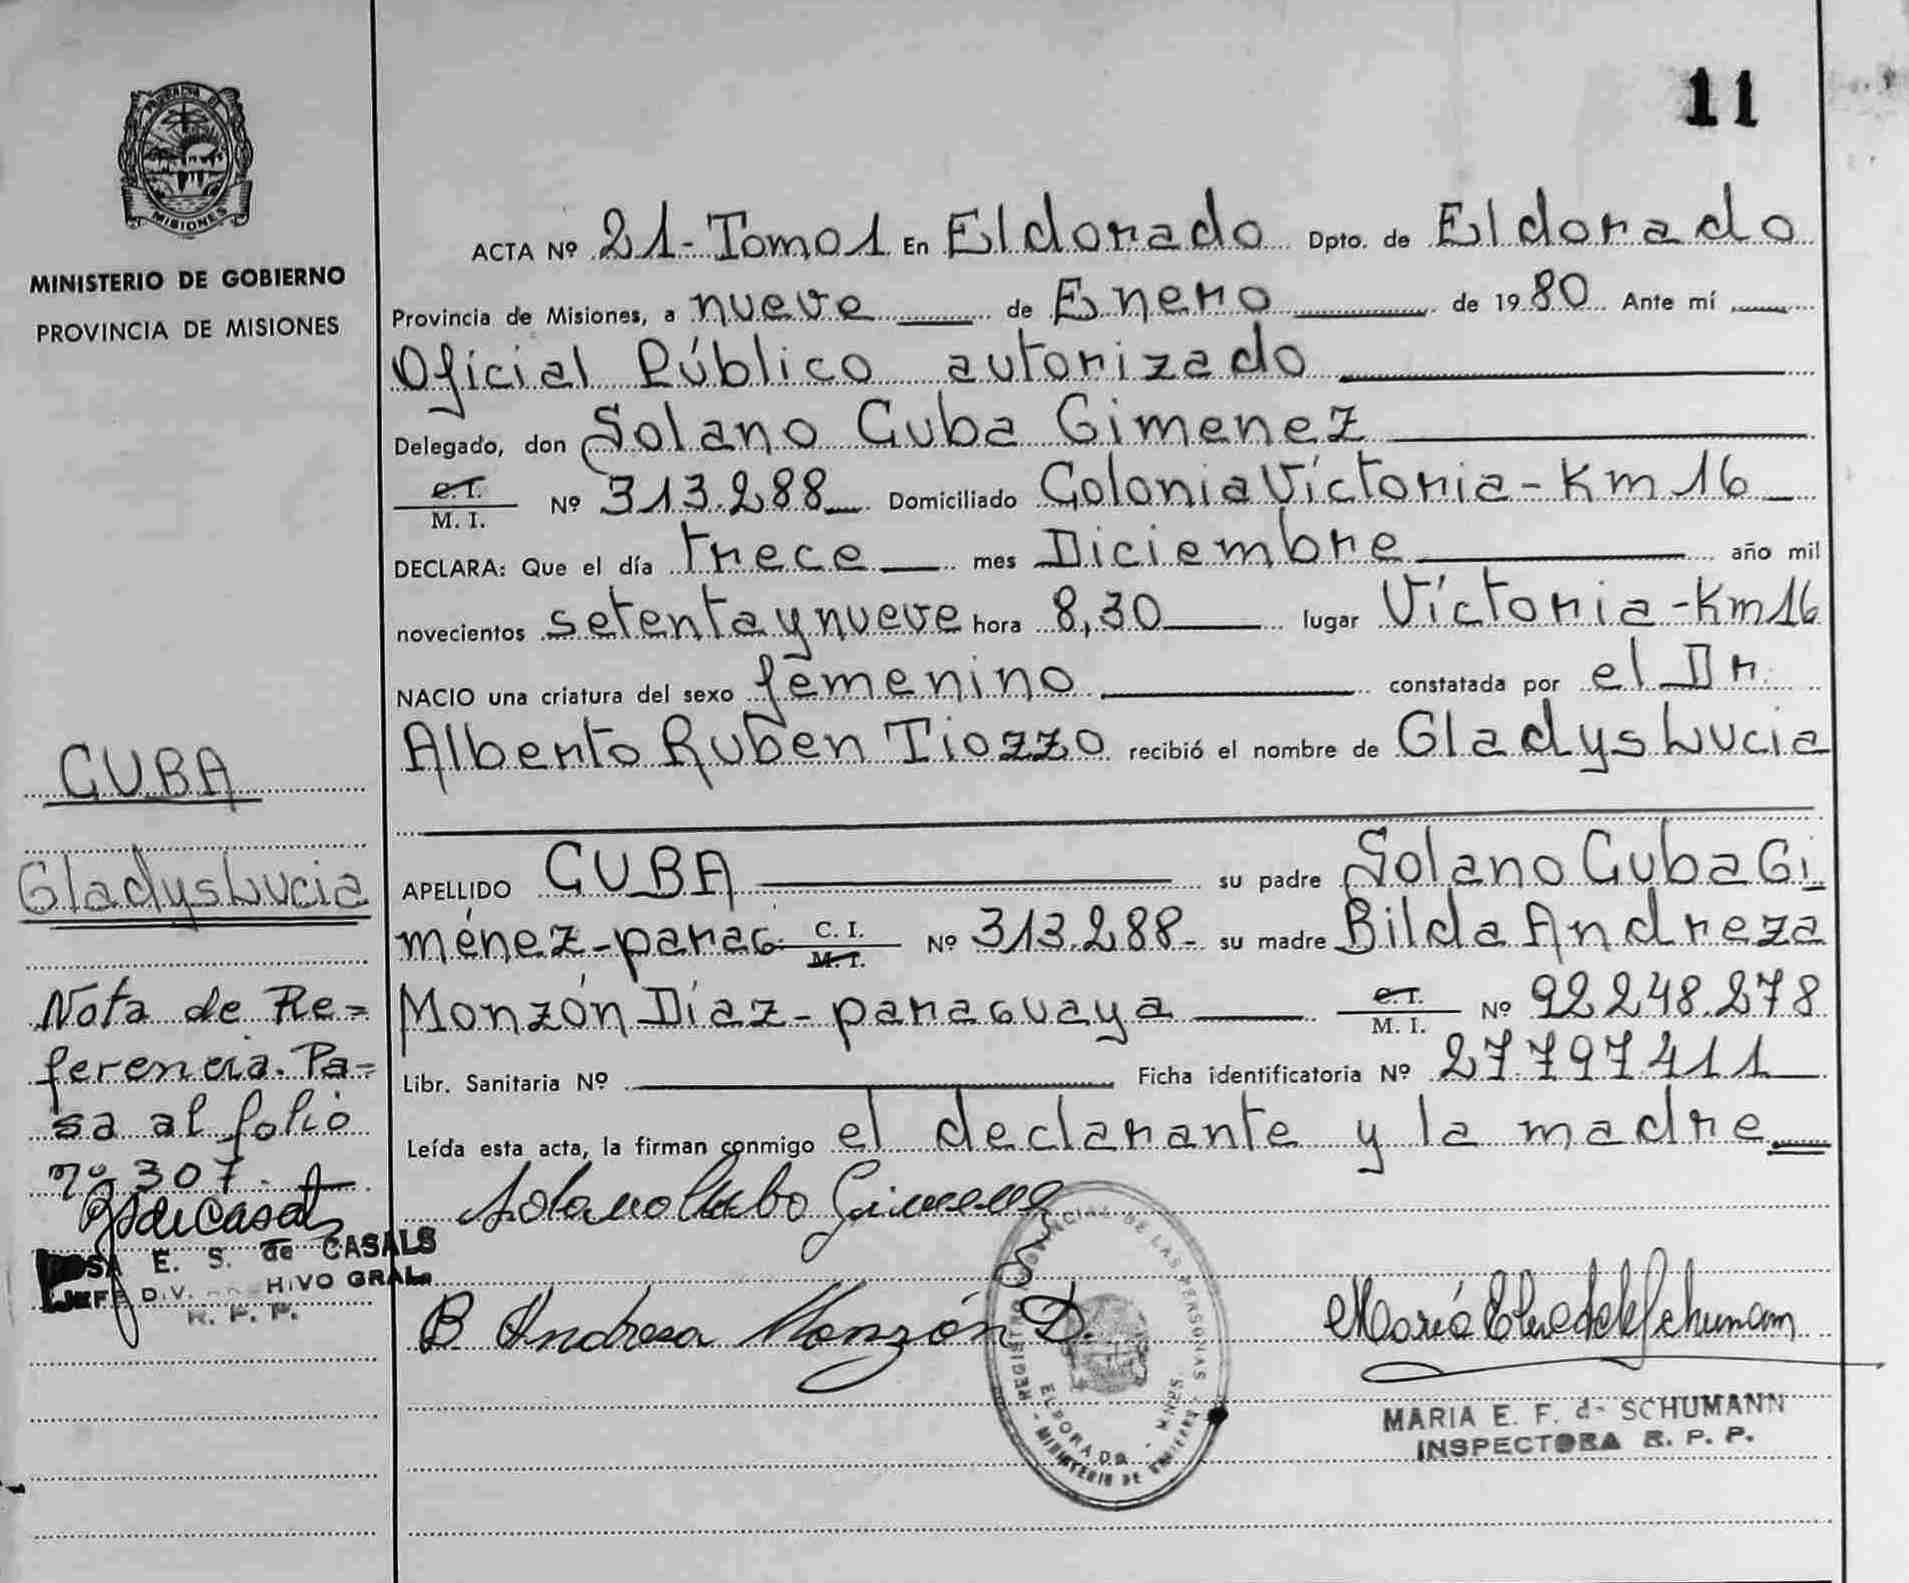 11
PROVINCIA DE
MISIONES
MINISTERIO DE GOBIERNO
PROVINCIA DE MISIONES
ACTA Nº 21-Tomo1 En Eldorado Dpto. de Eldorado
Provincia de Misiones, a nueve de Enero de 1980 Ante mí
Oficial Público autorizado
Delegado, don Solano Cuba Gimenez
C.I. M. I. Nº 313.288 Domiciliado Colonia Victoria-Km 16
DECLARA: Que el día trece mes Diciembre año mil
novecientos setenta y nueve hora 8,30 lugar Victoria-Km16
NACIO una criatura del sexo femenino constatada por el Dr.
Alberto Ruben Tiozzo recibió el nombre de Gladys Lucia
APELLIDO CUBA su padre Solano Cuba Gi
ménez-parag. C. I. M.I. Nº 313.288- su madre Bilda Andreza
Monzón Díaz-paraguaya C.I. M. I. Nº 92248.278
Libr. Sanitaria Nº Ficha identificatoria Nº 27797411
Leída esta acta, la firman conmigo el declarante y la madre
Solano Cuba Gimenez
B. Andresa Monzón D.
REGISTRO PROVINCIAL DE LAS PERSONAS
ELDORADO - MNES.
MINISTERIO DE GOBIERNO
MARIA E. F. de SCHUMANN
INSPECTORA R. P. P.
CUBA
Gladys Lucia
Nota de Re=
ferencia. Pa=
sa al folio
nº 307.
ROSA E. S. de CASALS
JEFE DIV. ARCHIVO GRAL.
R. P. P.